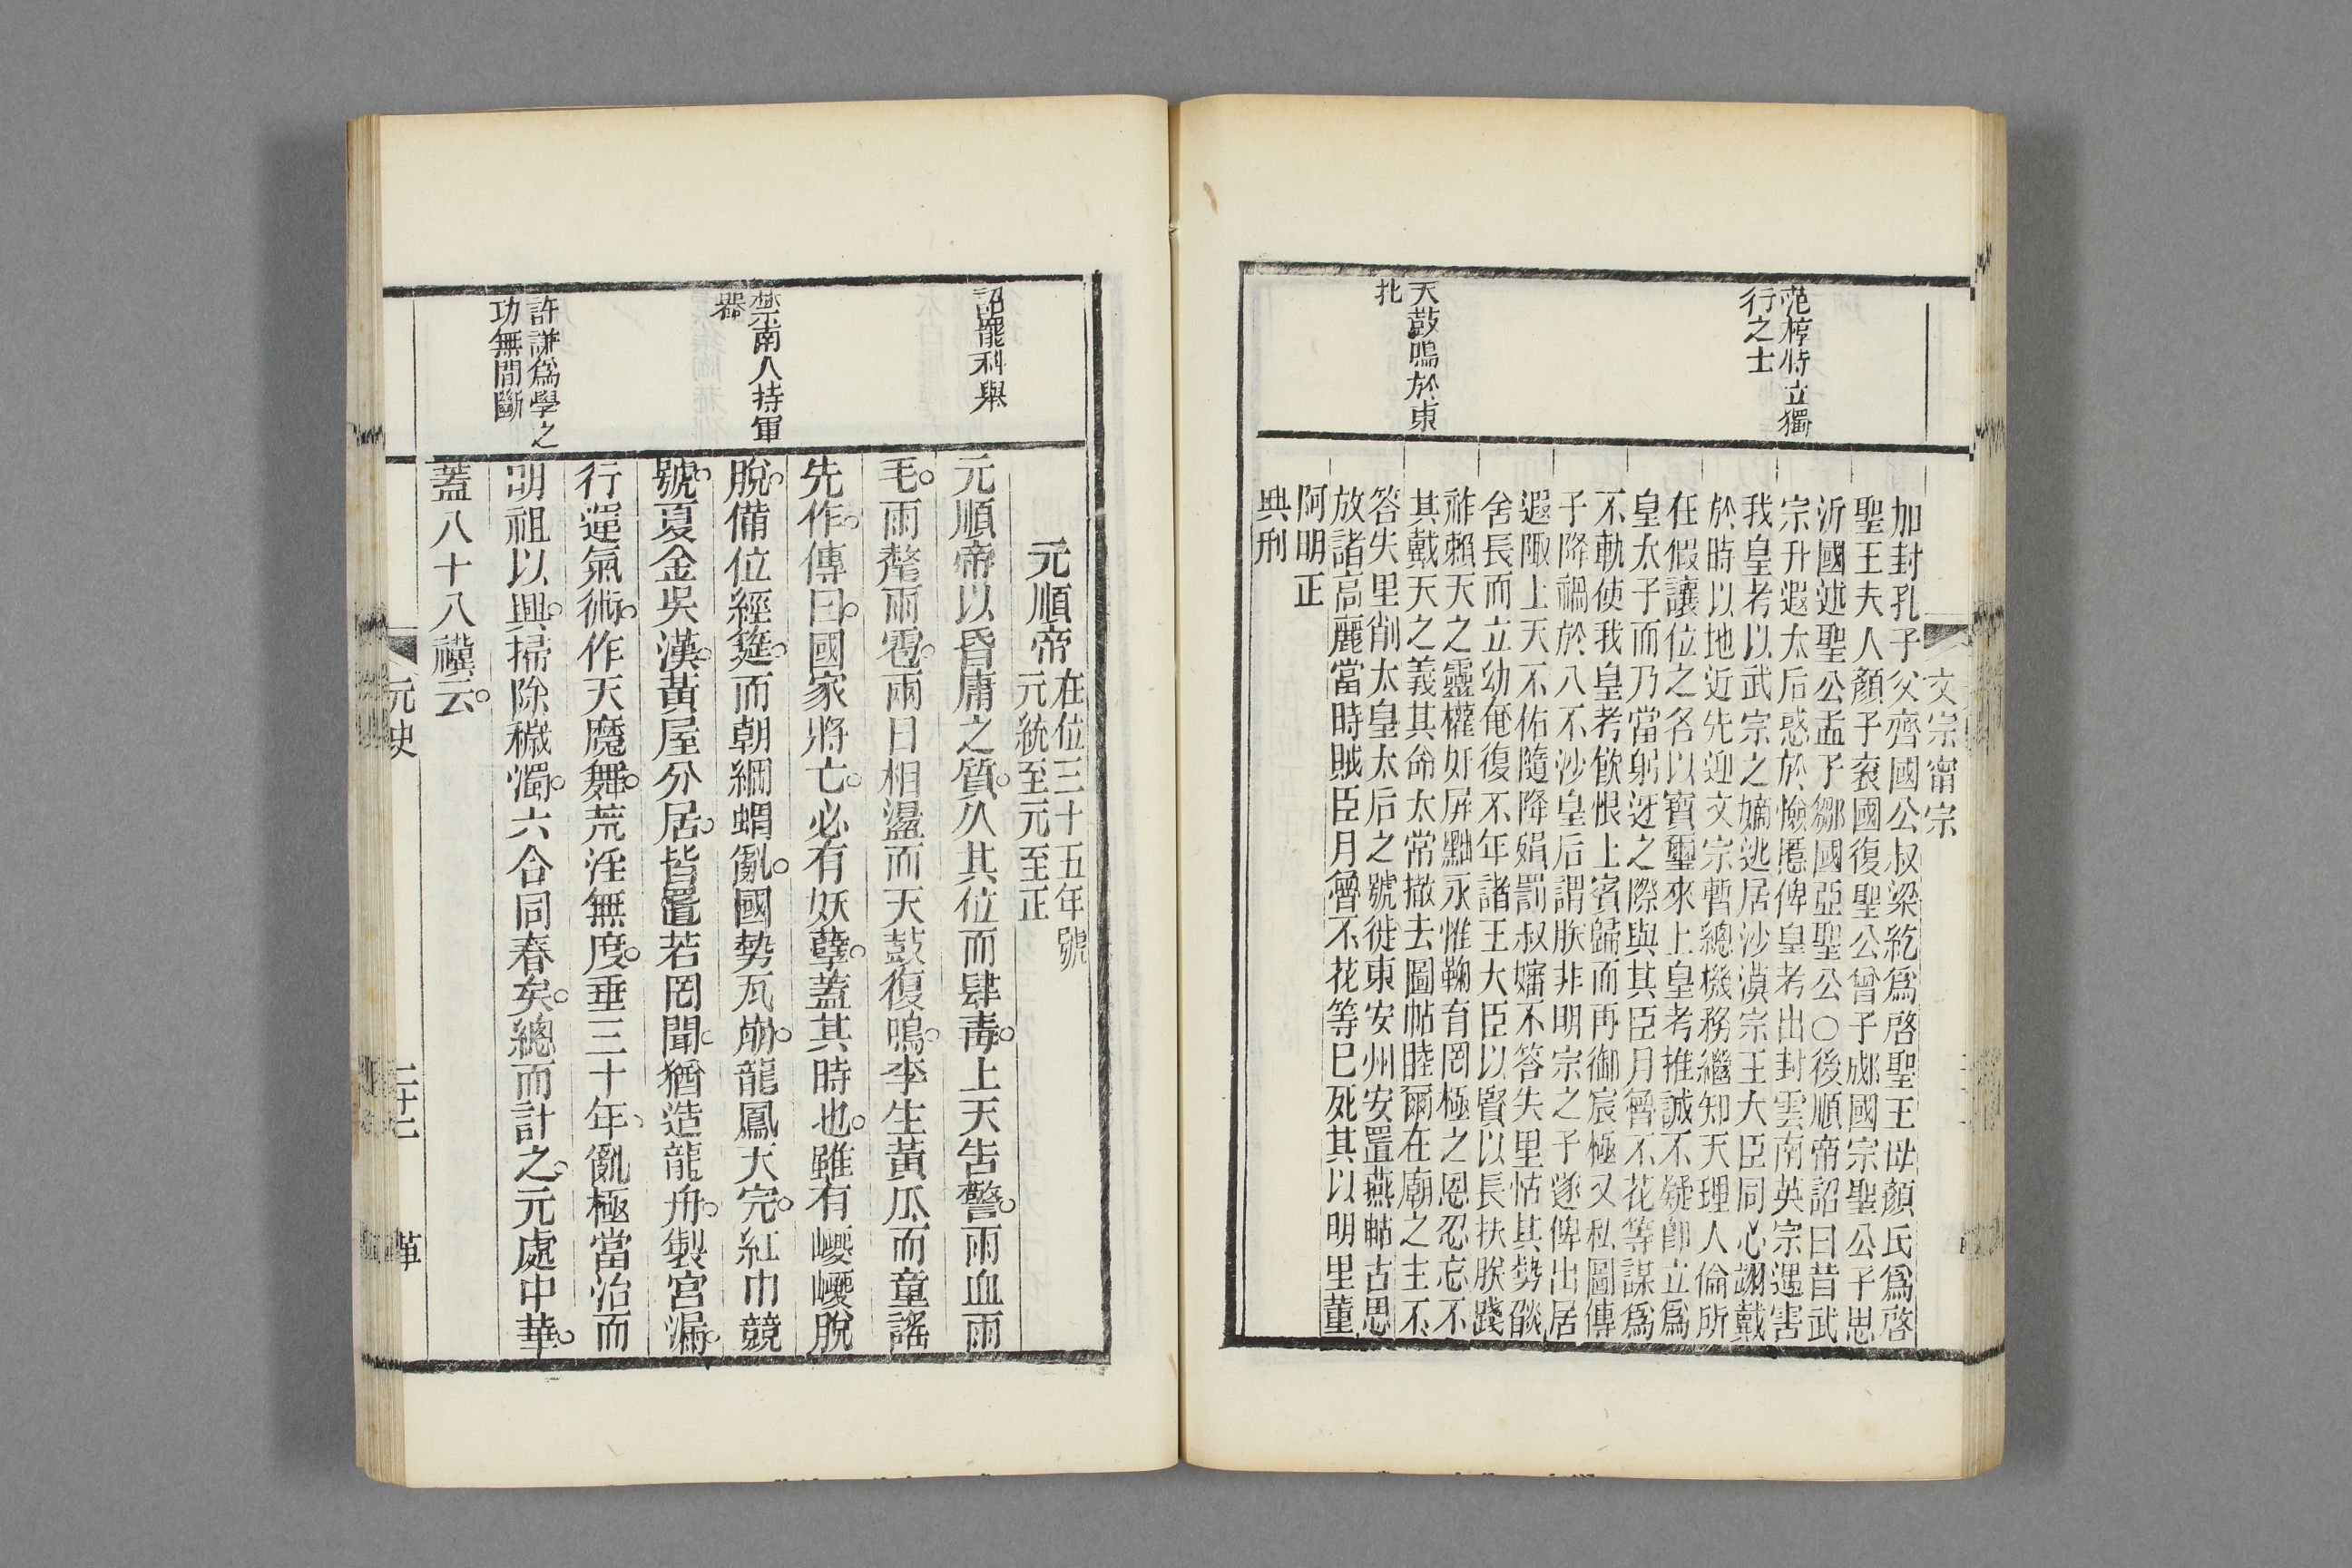 文宗甯宗
范梈特立獨
行之士
天鼓鳴於東
北
加封孔子父齊國公叔梁紇為啓聖王母顏氏為啓
聖王夫人顏子兖國復聖公曾子郕國宗聖公子思
沂國述聖公孟子鄒國亞聖公○後順帝詔曰昔武
宗升遐太后惑於憸慝俾皇考出封雲南英宗遇害
我皇考以武宗之嫡逃居沙漠宗王大臣同心翊戴
於時以地近先迎文宗暫總機務繼知天理人倫所
在假讓位之名以寶璽來上皇考推誠不疑卽立為
皇太子而乃當躬迓之際與其臣月魯不花等謀為
不軌使我皇考飲恨上賓歸而再御宸極又私圖傳
子降禍於八不沙皇后謂朕非明宗之子遂俾出居
遐陬上天不佑隨降殞罰叔嬸不答失里怙其勢燄
舍長而立幼奄復不年諸王大臣以賢以長扶朕踐
祚賴天之靈權奸屏黜永惟鞠有罔極之恩忍忘不
其戴天之義其命太常撤去圖帖睦爾在廟之主不
答失里削太皇太后之號徙東安州安置燕帖古思
放諸高麗當時賊臣月魯不花等巳死其以明里董
阿明正
典刑
詔罷科舉
禁南人持軍
器
許謙為學之
功無間斷
元順帝
在位三十五年號
元統至元至正
元順帝以昏庸之質。久其位而肆毒。上天告警。雨血雨
毛。雨氂雨雹。兩日相盪而天鼓復鳴。李生黃瓜而童謠
先作。傳曰。國家將亡。必有妖孽。蓋其時也。雖有巙巙脫
脫。備位經筵。而朝綱蝟亂。國勢瓦崩。龍鳳天完。紅巾競
號。夏金吳漢。黃屋分居。皆置若罔聞。猶造龍舟。製宮漏。
行運氣術。作天魔舞。荒淫無度。垂三十年、亂極當治而
明祖以興。掃除穢濁。六合同春矣。總而計之。元處中華。
蓋八十八禩云。
元史
二十七
革